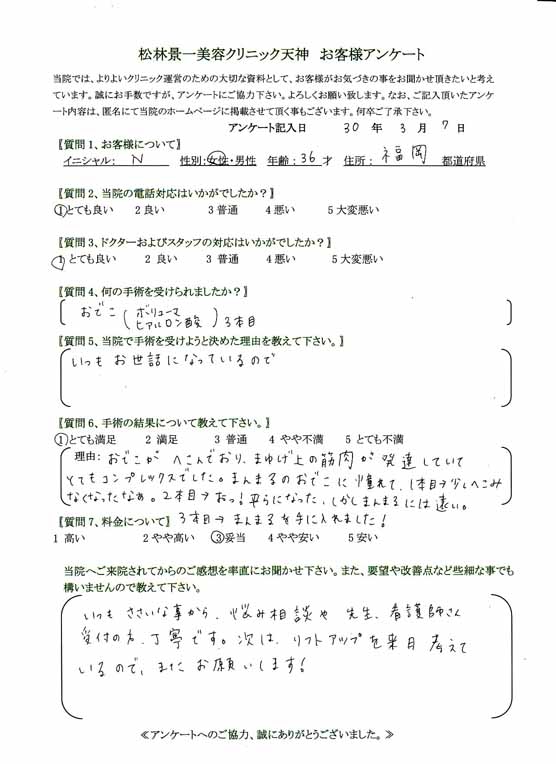 松林景一美容クリニック天神　お客様アンケート
当院では、よりよいクリニック運営のための大切な資料として、お客様がお気づきの事をお聞かせ頂きたいと考え
ています。誠にお手数ですが、アンケートにご協力下さい。よろしくお願い致します。なお、ご記入頂いたアンケ
ート内容は、匿名にて当院のホームページに掲載させて頂く事もございます。何卒ご了承下さい。
アンケート記入日　30 年 3 月 7 日
〖質問 1、お客様について〗
イニシャル：　N　性別：女性・男性　年齢：36 才　住所：福岡　都道府県
〖質問 2、当院の電話対応はいかがでしたか？〗
①とても良い　2 良い　3 普通　4 悪い　5 大変悪い
〖質問 3、ドクターおよびスタッフの対応はいかがでしたか？〗
① とても良い　2 良い　3 普通　4 悪い　5 大変悪い
〖質問 4、何の手術を受けられましたか？〗
おでこ (ボリューマ ヒアルロン酸) 3本目
〖質問 5、当院で手術を受けようと決めた理由を教えて下さい。〗
いつも お世話になっているので
〖質問 6、手術の結果について教えて下さい。〗
①とても満足　2 満足　3 普通　4 やや不満　5 とても不満
理由：おでこが へこんでおり、まゆげ上の筋肉が 発達していて
とてもコンプレックスでした。まんまるのおでこに 憧れて、1本目→少しへこみ
なくなったなぁ。2本目→おっ！平らになった、しかしまんまるには遠い。
3本目→まんまるを手に入れました！
〖質問 7、料金について〗
1 高い　2 やや高い　③妥当　4 やや安い　5 安い
当院へご来院されてからのご感想を率直にお聞かせ下さい。また、要望や改善点など些細な事でも
構いませんので教えて下さい。
いつも ささいな事から、悩み相談や 先生、看護師さん
受付の方、丁寧です。次は、リフトアップを来月 考えて
いるので、また お願いします！
≪アンケートへのご協力、誠にありがとうございました。≫